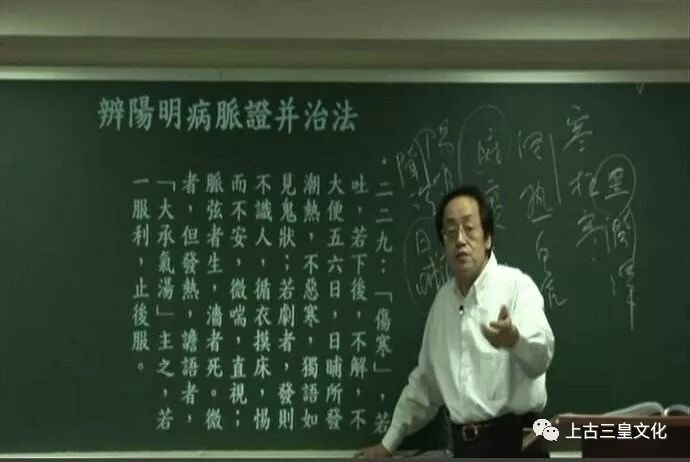 辨陽明病脈證并治法
•二二九：「傷寒」，若
吐，若下後，不解，不
大便五六日，日晡所發
潮熱，不惡寒，獨語如
見鬼狀；若劇者，發則
不識人，循衣摸床，惕
而不安，微喘，直視；
脈弦者生，濇者死。微
者，但發熱，譫語者，
「大承氣湯」主之，若
一服利，止後服。
寒
日晡
上古三皇文化